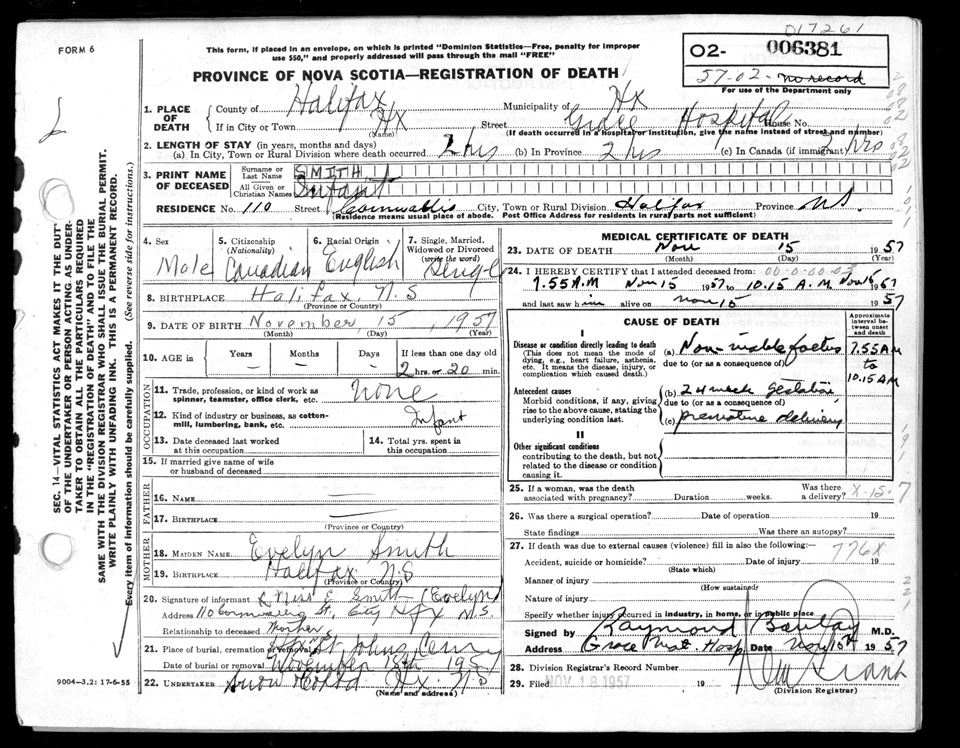 017261
FORM 6
This form, if placed in an envelope, on which is printed "Dominion Statistics—Free, penalty for improper
use $50," and properly addressed will pass through the mail "FREE"
O2- 006381
57-02- no record
For use of the Department only
PROVINCE OF NOVA SCOTIA—REGISTRATION OF DEATH
1. PLACE OF DEATH
County of Halifax Municipality of Hx
If in City or Town Hx Street Grace Hospital House No.
(Name) (If death occurred in a hospital or institution, give the name instead of street and number)
2. LENGTH OF STAY (in years, months and days)
(a) In City, Town or Rural Division where death occurred 2 hrs (b) In Province 2 hrs (c) In Canada (if immigrant) 2 hrs
3. PRINT NAME OF DECEASED
Surname or Last Name SMITH
All Given or Christian Names Infant
RESIDENCE No. 110 Street Cornwallis City, Town or Rural Division Halifax Province N.S.
(Residence means usual place of abode. Post Office Address for residents in rural parts not sufficient)
4. Sex Male
5. Citizenship (Nationality) Canadian
6. Racial Origin English
7. Single, Married, Widowed or Divorced (write the word) Single
8. BIRTHPLACE Halifax, N.S
(Province or Country)
9. DATE OF BIRTH November 15, 1957
(Month) (Day) (Year)
10. AGE in Years — Months — Days — If less than one day old 2 hrs. or 20 min.
OCCUPATION
11. Trade, profession, or kind of work as spinner, teamster, office clerk, etc. none
12. Kind of industry or business, as cotton-mill, lumbering, bank, etc. Infant
13. Date deceased last worked at this occupation
14. Total yrs. spent in this occupation
15. If married give name of wife or husband of deceased
FATHER
16. NAME —
17. BIRTHPLACE —
(Province or Country)
MOTHER
18. MAIDEN NAME Evelyn Smith
19. BIRTHPLACE Halifax N.S
(Province or Country)
20. Signature of informant Miss E Smith (Evelyn)
Address 110 Cornwallis St, City Hfx N.S.
Relationship to deceased Mother
21. Place of burial, cremation or removal St Johns Cemy
Date of burial or removal November 18th 1957
22. UNDERTAKER Snow & Co Ltd Hx. N.S
(Name and address)
9004-3.2: 17-6-55
MEDICAL CERTIFICATE OF DEATH
23. DATE OF DEATH Nov 15 1957
(Month) (Day) (Year)
24. I HEREBY CERTIFY that I attended deceased from:
7.55 A.M Nov 15 1957 to 10.15 A.M. Nov 15 1957
and last saw him alive on Nov 15 1957
CAUSE OF DEATH
Approximate interval between onset and death
I
Disease or condition directly leading to death
(This does not mean the mode of dying, e.g., heart failure, asthenia, etc. It means the disease, injury, or complication which caused death.)
(a) Non-viable foetus 7.55 AM to 10.15 AM
due to (or as a consequence of)
Antecedent causes
Morbid conditions, if any, giving rise to the above cause, stating the underlying condition last.
(b) 24 week gestation
due to (or as a consequence of)
(c) premature delivery
II
Other significant conditions
contributing to the death, but not related to the disease or condition causing it.
25. If a woman, was the death associated with pregnancy? Duration weeks. Was there a delivery?
X-15-7
26. Was there a surgical operation? Date of operation 19
State findings Was there an autopsy?
27. If death was due to external causes (violence) fill in also the following:—
776X
Accident, suicide or homicide? Date of injury 19
(State which)
Manner of injury
(How sustained)
Nature of injury
Specify whether injury occurred in industry, in home, or in public place
Signed by Raymond Barclay M.D.
Address Grace Mat. Hosp Date Nov 1957
28. Division Registrar's Record Number
29. Filed NOV 18 1957
(Division Registrar)
SEC. 14—VITAL STATISTICS ACT MAKES IT THE DUTY
OF THE UNDERTAKER OR PERSON ACTING. AS UNDER-
TAKER TO OBTAIN ALL THE PARTICULARS REQUIRED
IN THE "REGISTRATION OF DEATH" AND TO FILE THE
SAME WITH THE DIVISION REGISTRAR WHO SHALL ISSUE THE BURIAL PERMIT.
WRITE PLAINLY WITH UNFADING INK. THIS IS A PERMANENT RECORD.
Every item of information should be carefully supplied. (See reverse side for instructions.)